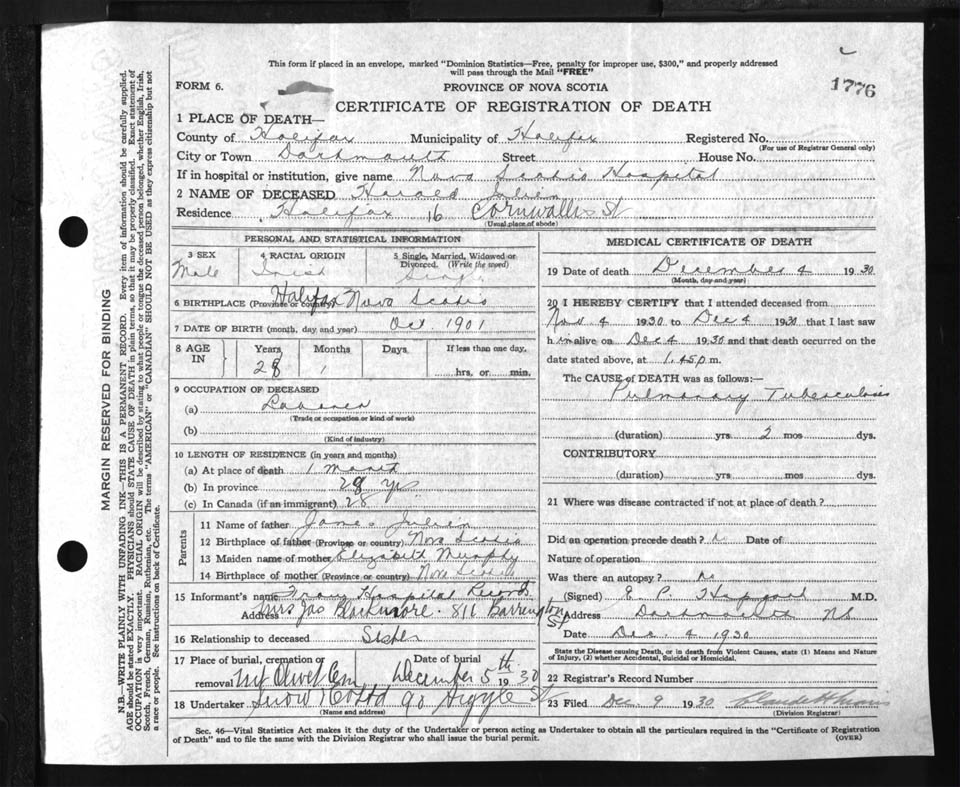 This form if placed in an envelope, marked "Dominion Statistics—Free, penalty for improper use, $300," and properly addressed
will pass through the Mail "FREE"
1776
FORM 6.
PROVINCE OF NOVA SCOTIA
CERTIFICATE OF REGISTRATION OF DEATH
1 PLACE OF DEATH—
County of Halifax Municipality of Halifax Registered No.
(For use of Registrar General only)
City or Town Dartmouth Street House No.
If in hospital or institution, give name Nova Scotia Hospital
2 NAME OF DECEASED Harold Julien
Residence Halifax 16 Cornwallis St
(Usual place of abode)
PERSONAL AND STATISTICAL INFORMATION
3 SEX 4 RACIAL ORIGIN 5 Single, Married, Widowed or
Divorced. (Write the word)
Male Irish Single
6 BIRTHPLACE (Province or country) Halifax Nova Scotia
7 DATE OF BIRTH (month, day and year) Oct. 1901
8 AGE IN Years Months Days If less than one day,
28 1 hrs. or min.
9 OCCUPATION OF DECEASED
(a) Labourer
(Trade or occupation or kind of work)
(b)
(Kind of industry)
10 LENGTH OF RESIDENCE (in years and months)
(a) At place of death 1 month
(b) In province 28 yrs.
(c) In Canada (if an immigrant) 28
Parents
11 Name of father James Julien
12 Birthplace of father (Province or country) Nova Scotia
13 Maiden name of mother Elizabeth Murphy
14 Birthplace of mother (Province or country) Nova Scotia
15 Informant's name From Hospital Records
Address Mrs Jas Blackmore. 811 Barrington St
16 Relationship to deceased Sister
17 Place of burial, cremation or removal Mt Olivet Cem Date of burial December 5th 1930
18 Undertaker Snow & Co Ltd 90 Argyle St
(Name and address)
MEDICAL CERTIFICATE OF DEATH
19 Date of death December 4 1930
(Month, day and year)
20 I HEREBY CERTIFY that I attended deceased from
Nov 4 1930 to Dec 4 1930 that I last saw
him alive on Dec 4 1930 and that death occurred on the
date stated above, at 1.45 p.m.
The CAUSE of DEATH was as follows:—
Pulmonary Tuberculosis
(duration) yrs 2 mos dys.
CONTRIBUTORY
(duration) yrs mos dys.
21 Where was disease contracted if not at place of death?
Did an operation precede death? Date of
Nature of operation
Was there an autopsy? no
(Signed) E. P. M.D.
Address Dartmouth NS
Date Dec. 4 1930
State the Disease causing Death, or in death from Violent Causes, state (1) Means and
Nature of Injury, (2) whether Accidental, Suicidal or Homicidal.
22 Registrar's Record Number
23 Filed Dec. 9 1930
(Division Registrar)
Sec. 46—Vital Statistics Act makes it the duty of the Undertaker or person acting as Undertaker to obtain all the particulars required in the "Certificate of Registration
of Death" and to file the same with the Division Registrar who shall issue the burial permit.
(OVER)
MARGIN RESERVED FOR BINDING
N.B.—WRITE PLAINLY WITH UNFADING INK—THIS IS A PERMANENT RECORD. Every item of information should be carefully supplied.
AGE should be stated EXACTLY. PHYSICIANS should STATE CAUSE OF DEATH in plain terms, so that it may be properly classified. Exact statement of
OCCUPATION is very important. RACIAL ORIGIN will be described by stating to what people or tongue the deceased person belonged, whether English, Irish,
Scotch, French, German, Russian, Ruthenian, etc. The terms "AMERICAN" or "CANADIAN" SHOULD NOT BE USED as they express citizenship but not
a race or people. See instructions on back of Certificate.